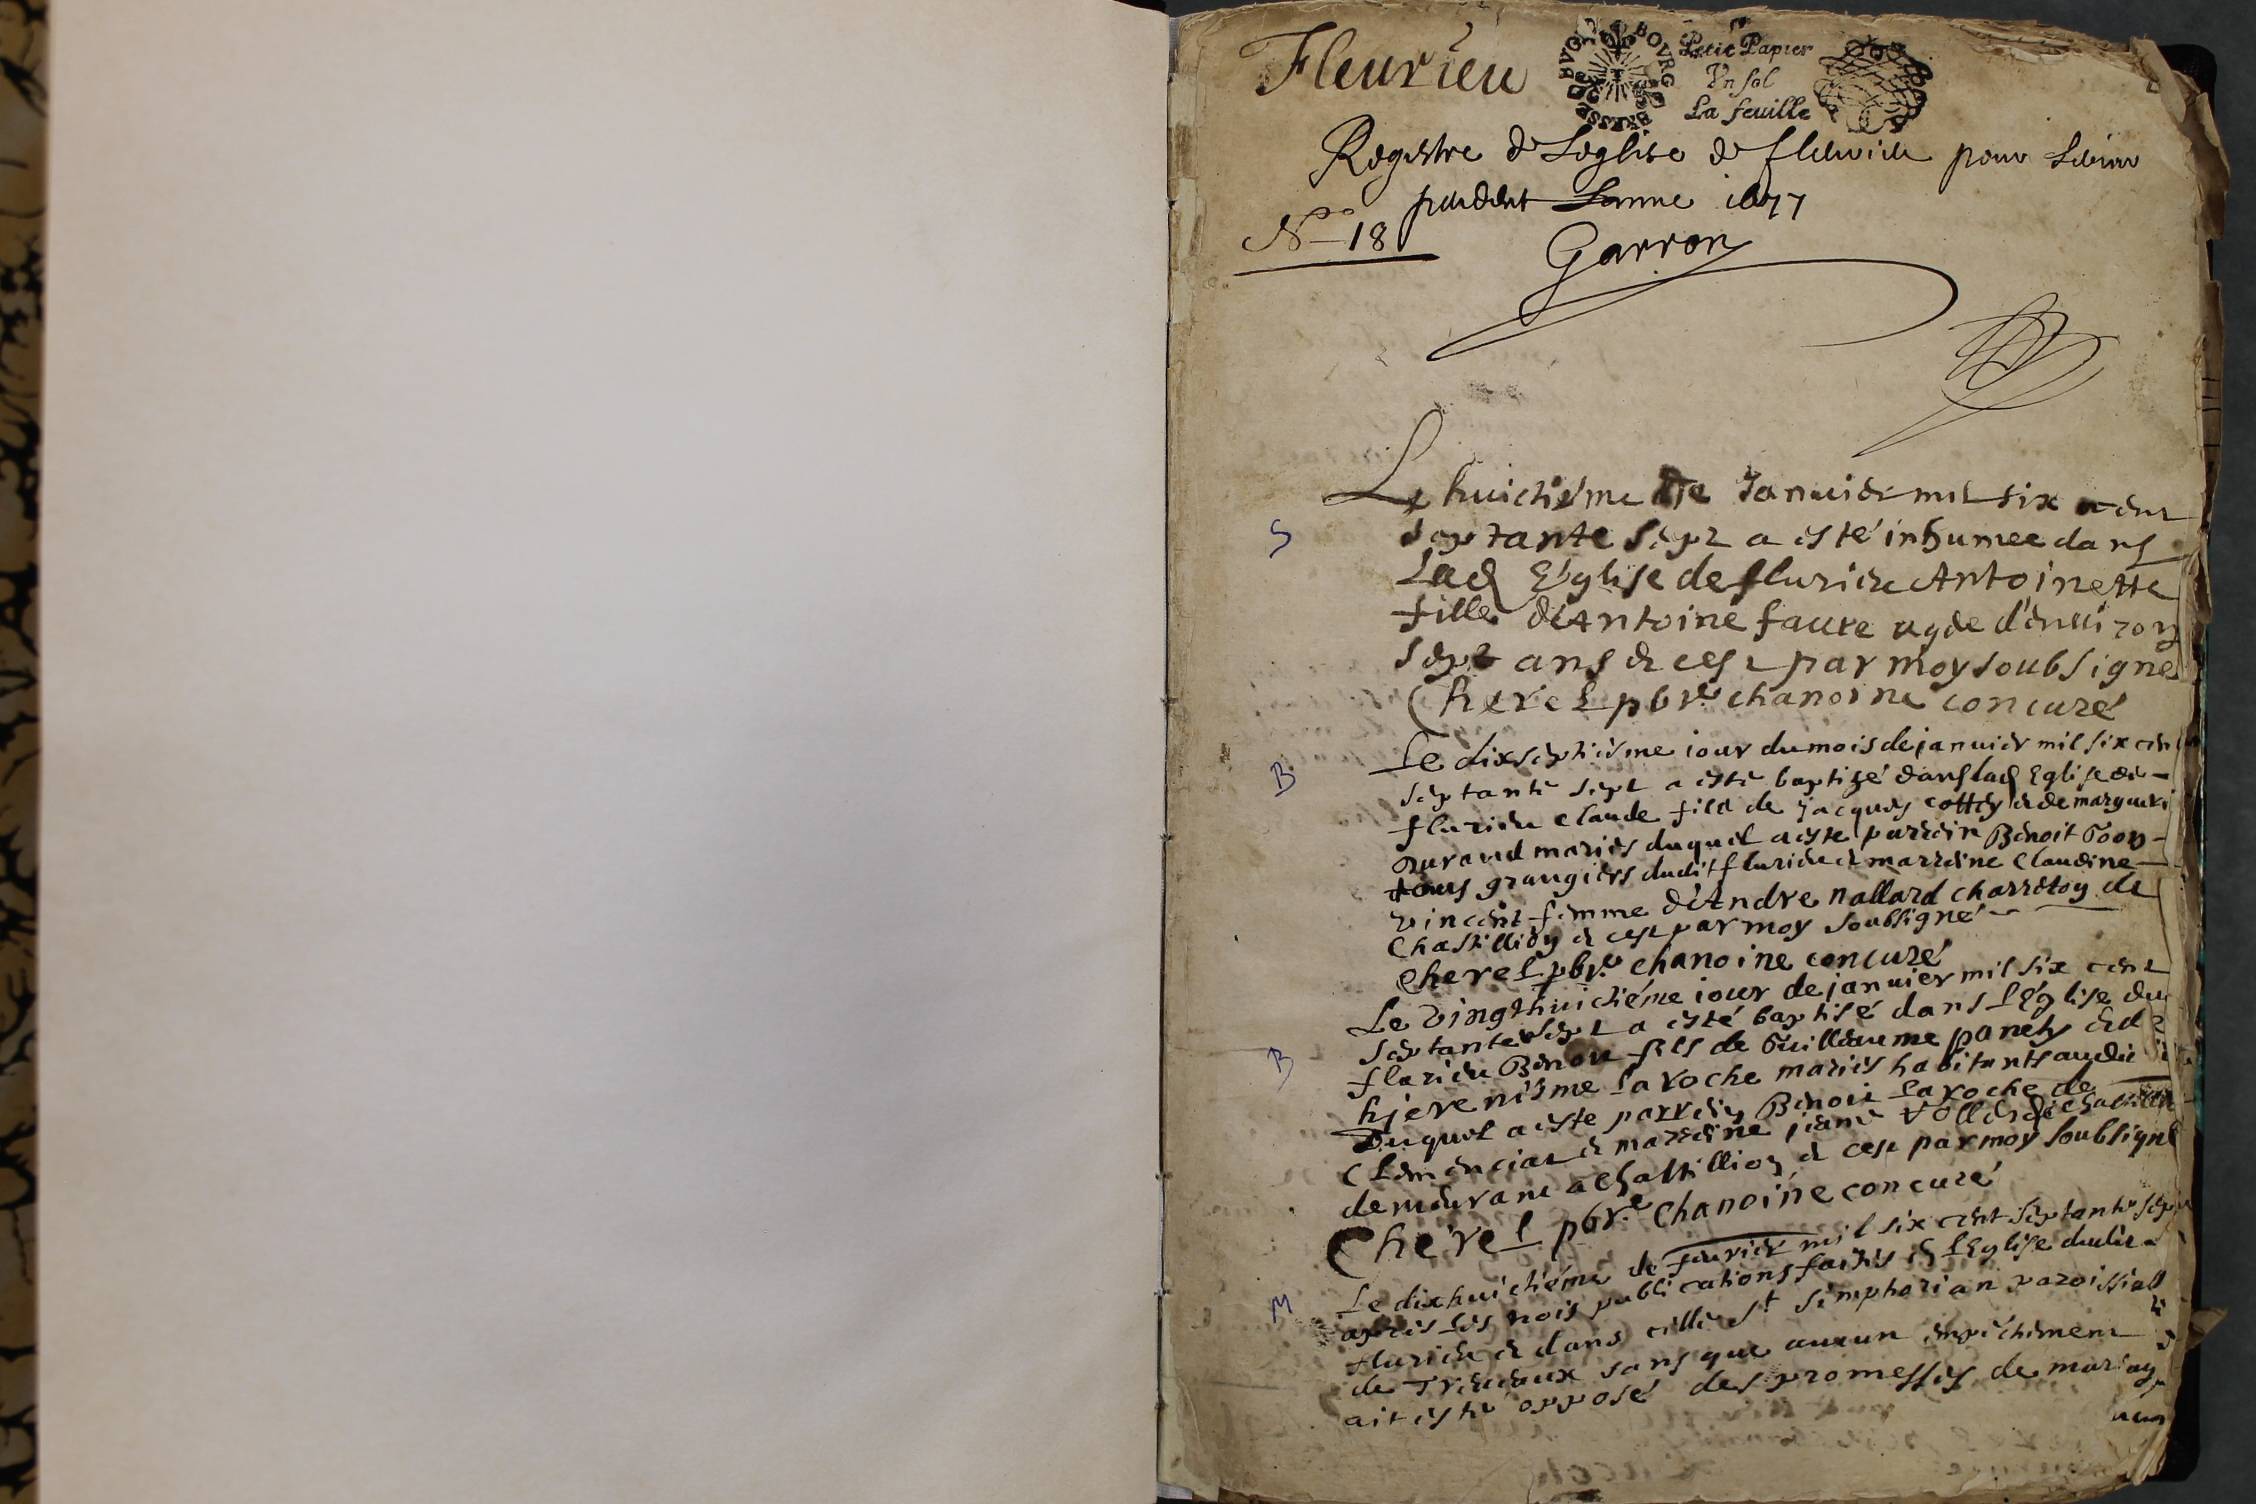 Fleurieu
BOVRG BRESSE BVGEY
Petit Papier
Vn sol
La feuille
Registre de Leglise de fleurieu pour servir
pendent Lanne 1677
No 18
Garron
Le huictiéme de Januier mil six cent
S septante sept a esté inhumee dans
Lad Eglise de flurieu Antoinette
fille d'Antoine faure agee d'enuiron
sept ans et cest par moy soubsigné
Cherel pbre chanoine concuré
Le dixseptiesme iour du mois de januier mil six cent
B septante sept a esté baptizé dans lad Eglise de
flurieu Claude fils de Jacques cottey et de margueri
Durand mariés duquel a esté parrein Benoit
grangiers dudit flurieu et marreine Claudine
vincent femme d'Andre nallard charreton de
Chastillion et cest par moy soubsigné
Cherel pbre chanoine concuré
Le vingthuictiéme iour de januier mil six cent
septante sept a esté baptisé dans l'Eglise du
B flurieu Benoit fils de Guillaume panety et de
hjerenisme Laroche mariés habitants audit
Duquel a esté parrein Benoit Laroche de
Clemenciat et marreine jeane de Chastillion
demeurant a Chastillion et cest par moy soubsigné
Cherel pbre Chanoine concuré
M Le dixhuictiéme de feurier mil six cent septante sept
apres les trois publications faites en l'Eglise dudit
flurieu et dans celle St Simphorian paroissiall
de Treuoux sans que aucun empéchement
ait esté opposé des promesses de mariag